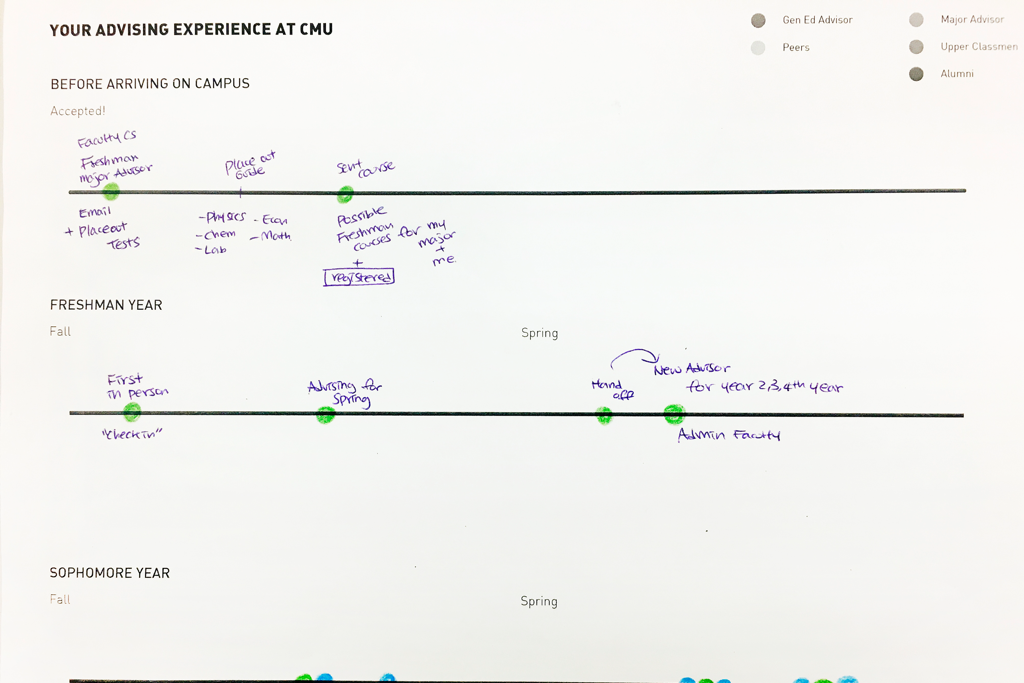 YOUR ADVISING EXPERIENCE AT CMU
Gen Ed Advisor
Major Advisor
Peers
Upper Classmen
Alumni
BEFORE ARRIVING ON CAMPUS
Accepted!
Faculty CS
Freshman
major Advisor
Place out
Guide
Sent
course
Email
+ Placeout
Tests
- Physics
- Chem
- Lab
- Econ
- Math
Possible
Freshman
courses for my
major
+
me.
+
registered
FRESHMAN YEAR
Fall
Spring
First
in person
"Check in"
Advising for
Spring
Hand
off
New Advisor
for year 2,3,4th year
Admin Faculty
SOPHOMORE YEAR
Fall
Spring